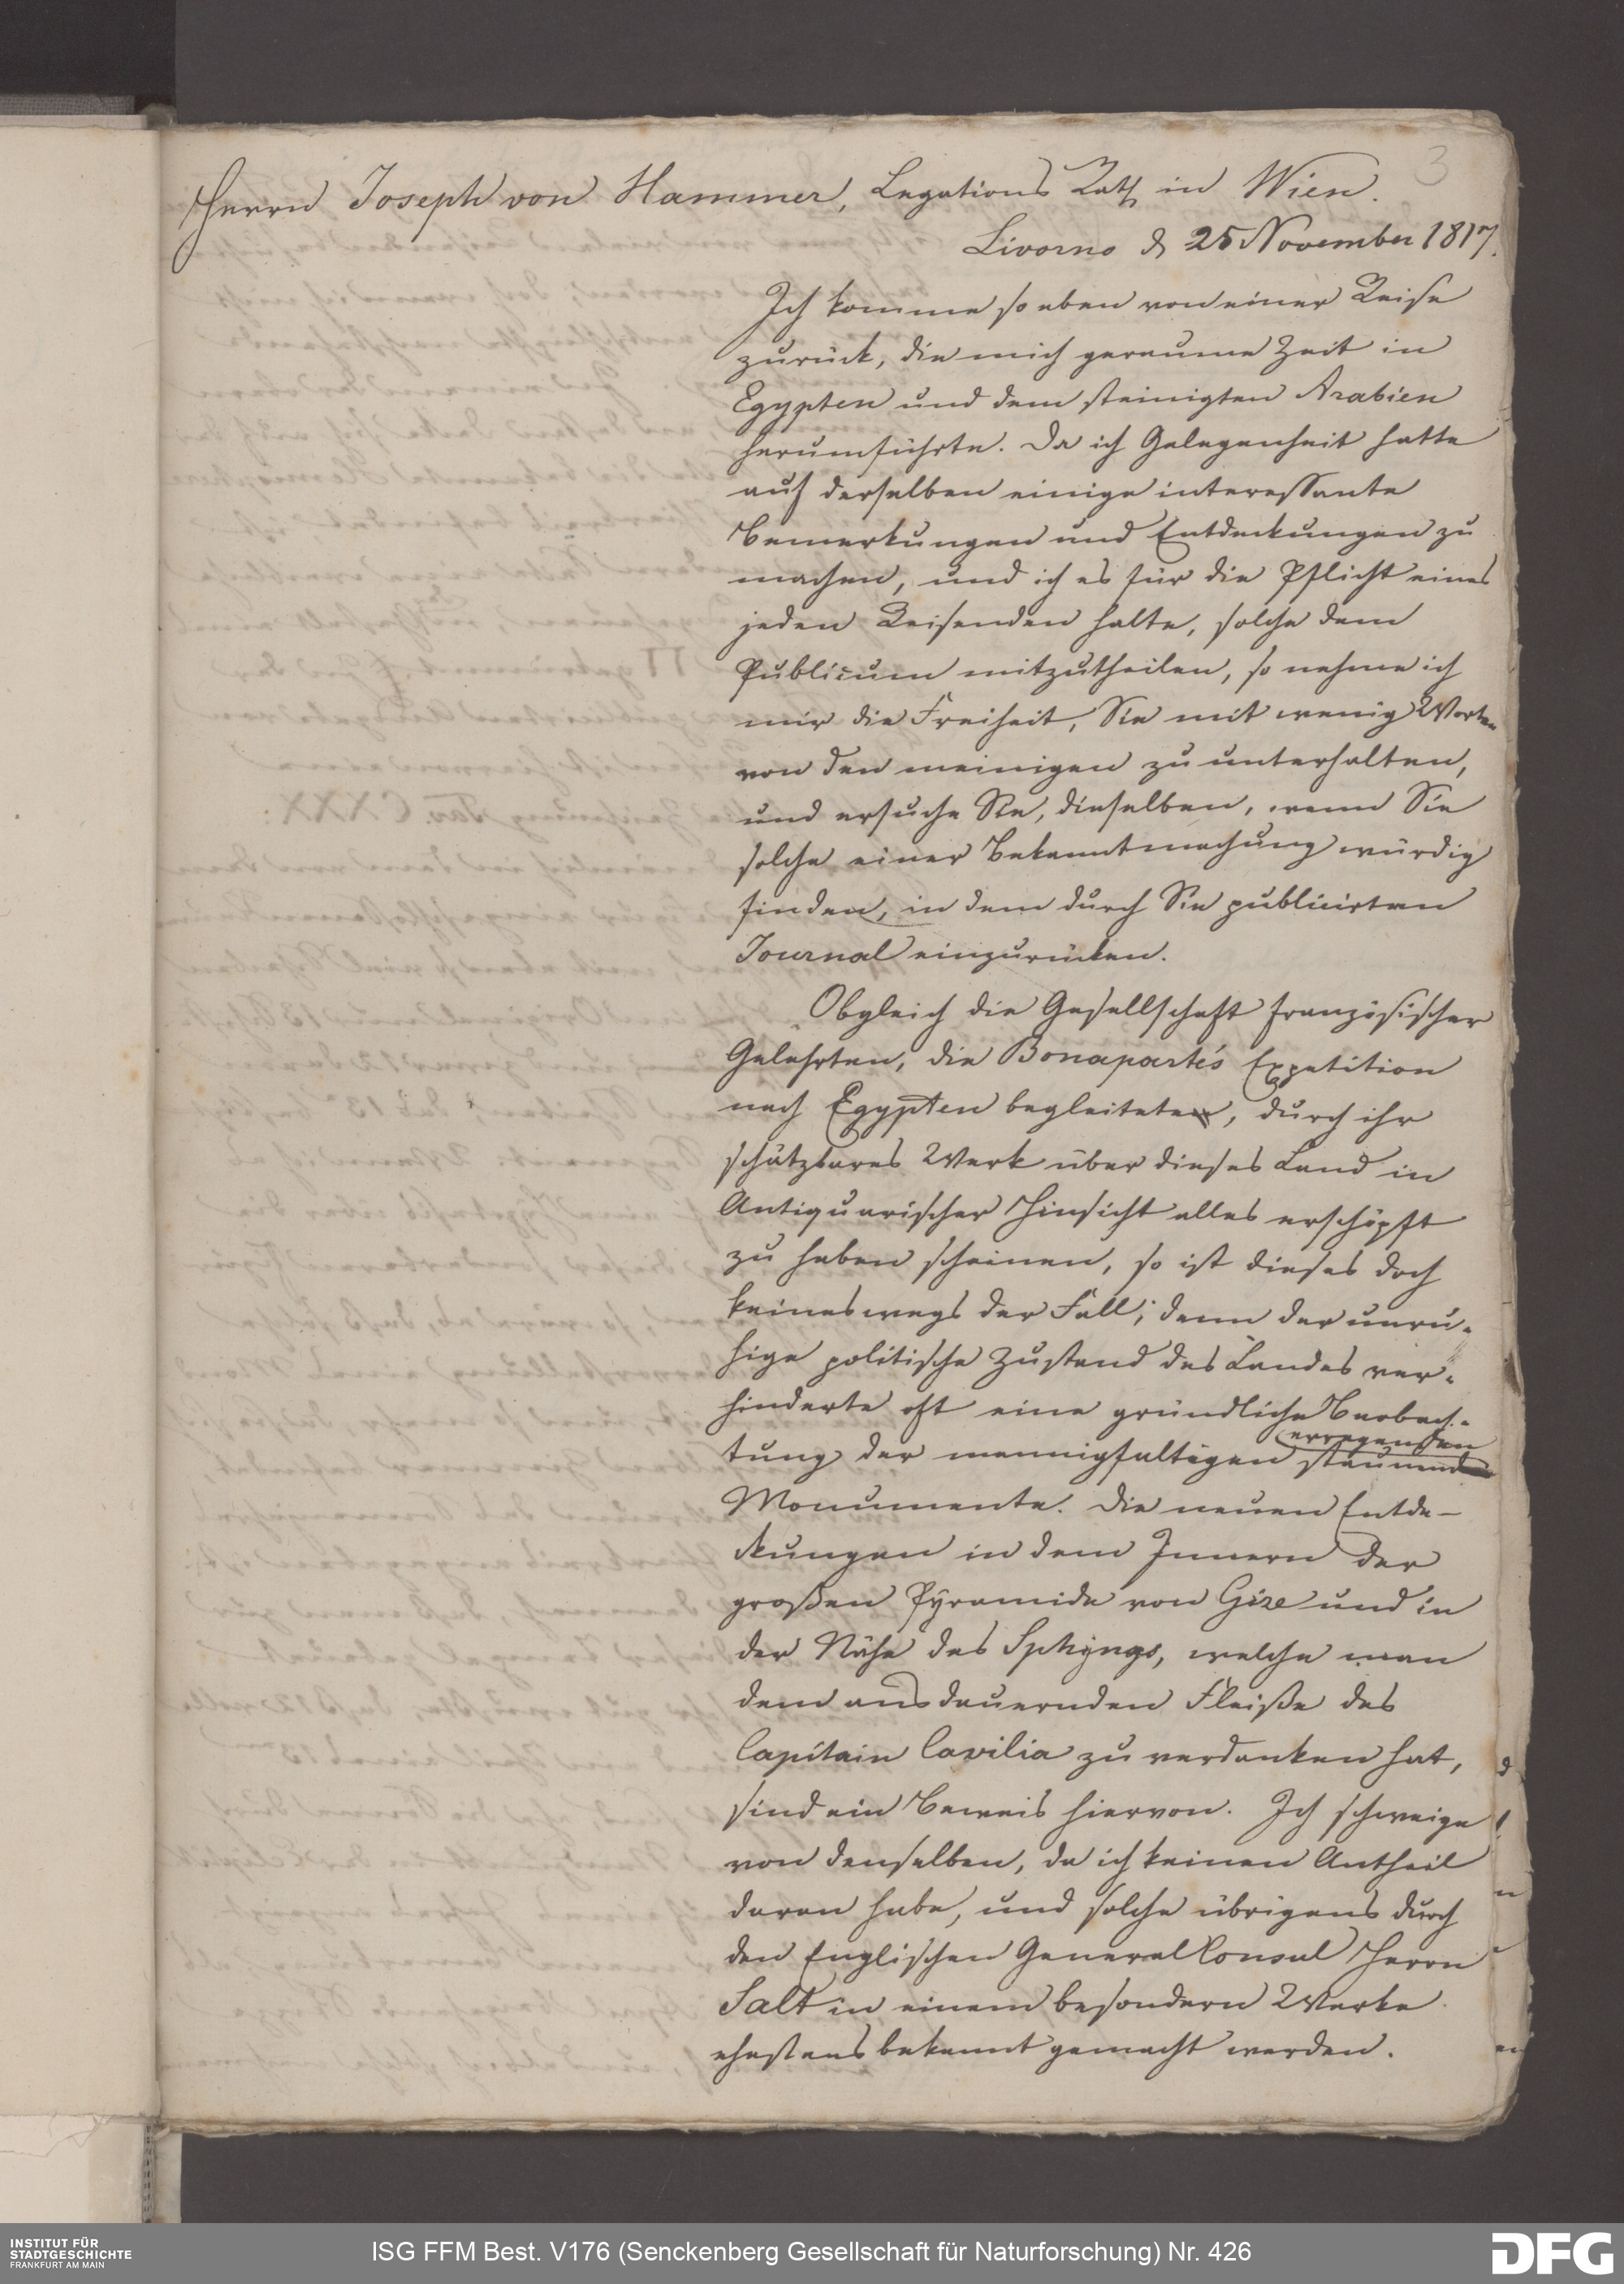 3
Herrn Joseph von Hammer, Legations Rath in Wien.
Livorno d 25 November 1817.
Ich komme so eben von einer Reise
zurück, die mich geraume Zeit in
Egypten und dem steinigten Arabien
herumführte. Da ich Gelegenheit hatte
auf derselben einige interessante
Bemerkungen und Entdeckungen zu
machen, und ich es für die Pflicht eines
jeden Reisenden halte, solche dem
Publicum mitzutheilen, so nehme ich
mir die Freiheit, Sie mit wenig Worten
von den meinigen zu unterhalten,
und ersuche Sie, dieselben, wenn Sie
solche einer Bekanntmachung würdig
finden, in dem durch Sie publicirten
Journal einzurücken.
Obgleich die Gesellschaft französischer
Gelehrten, die Bonaparte's Expetition
nach Egypten begleitete, durch ihr
schätzbares Werk über dieses Land in
Antiquarischer Hinsicht alles erschöpft
zu haben scheinen, so ist dieses doch
keineswegs der Fall; denn der unru-
hige politische Zustand des Landes ver-
hinderte oft eine gründliche Beobach-
tung der mannigfaltigen staunend
erregenden
Monumente. Die neuen Entde-
ckungen in dem Innern der
großen Pyramide von Gize und in
der Nähe des Sphynxs, welche man
dem ausdauernden Fleiße des
Capitain Cavilia zu verdanken hat,
sind ein Beweis hiervon. Ich schweige
von denselben, da ich keinen Antheil
daran habe, und solche übrigens durch
den Englischen General Consul Herrn
Salt in einem besondern Werke
ehestens bekannt gemacht werden.
INSTITUT FÜR
STADTGESCHICHTE
FRANKFURT AM MAIN
ISG FFM Best. V176 (Senckenberg Gesellschaft für Naturforschung) Nr. 426
DFG